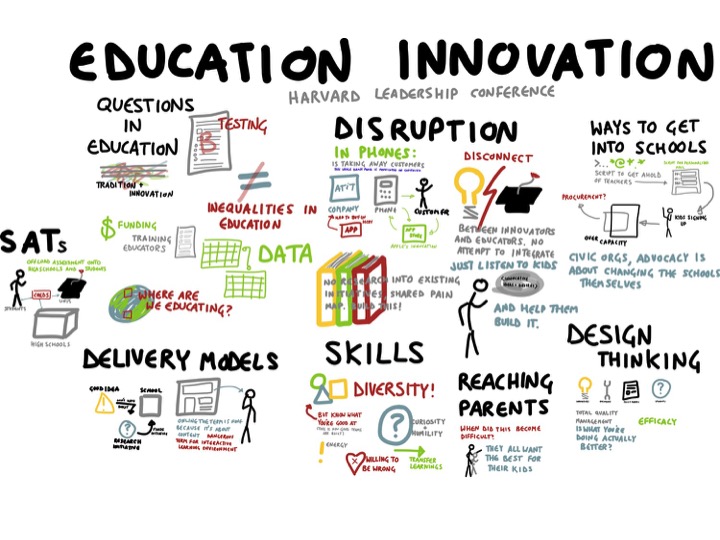 EDUCATION INNOVATION
HARVARD LEADERSHIP CONFERENCE
QUESTIONS
IN
EDUCATION
TRADITION +
INNOVATION
TESTING
INEQUALITIES IN
EDUCATION
$ FUNDING
TRAINING
EDUCATORS
DATA
WHERE ARE
WE EDUCATING?
SATs
OFFLOAD ASSESSMENT ONTO
HIGHSCHOOLS AND STUDENTS
STUDENTS
HIGH SCHOOLS
DISRUPTION
IN PHONES:
IS TAKING AWAY CUSTOMERS
AT&T
COMPANY
PHONE
CUSTOMER
APP
DISCONNECT
BETWEEN INNOVATORS
AND EDUCATORS. NO
ATTEMPT TO INTEGRATE
JUST LISTEN TO KIDS
AND HELP THEM
BUILD IT.
NO RESEARCH INTO EXISTING
INITIATIVES SHARED PAIN
MAP. BUILD THIS!
WAYS TO GET
INTO SCHOOLS
>... *@+*.*
SCRIPT TO GET AHOLD
OF TEACHERS
PROCUREMENT?
KIDS SIGNING
UP
OVER CAPACITY
CIVIC ORGS, ADVOCACY IS
ABOUT CHANGING THE SCHOOLS
THEMSELVES
DELIVERY MODELS
GOOD IDEA
SCHOOL
RESEARCH
BECAUSE IT'S ABOUT
CONTENT DANGEROUS
TERM FOR INTERACTIVE
LEARNING ENVIRONMENT
SKILLS
DIVERSITY!
BUT KNOW WHAT
YOU'RE GOOD AT
? CURIOSITY +
HUMILITY
! ENERGY
X WILLING TO
BE WRONG
TRANSFER
LEARNINGS
REACHING
PARENTS
WHEN DID THIS BECOME
DIFFICULT?
THEY ALL WANT
THE BEST FOR
THEIR KIDS
DESIGN
THINKING
?
TOTAL QUALITY
MANAGEMENT
IS WHAT YOU'RE
DOING ACTUALLY
BETTER?
EFFICACY